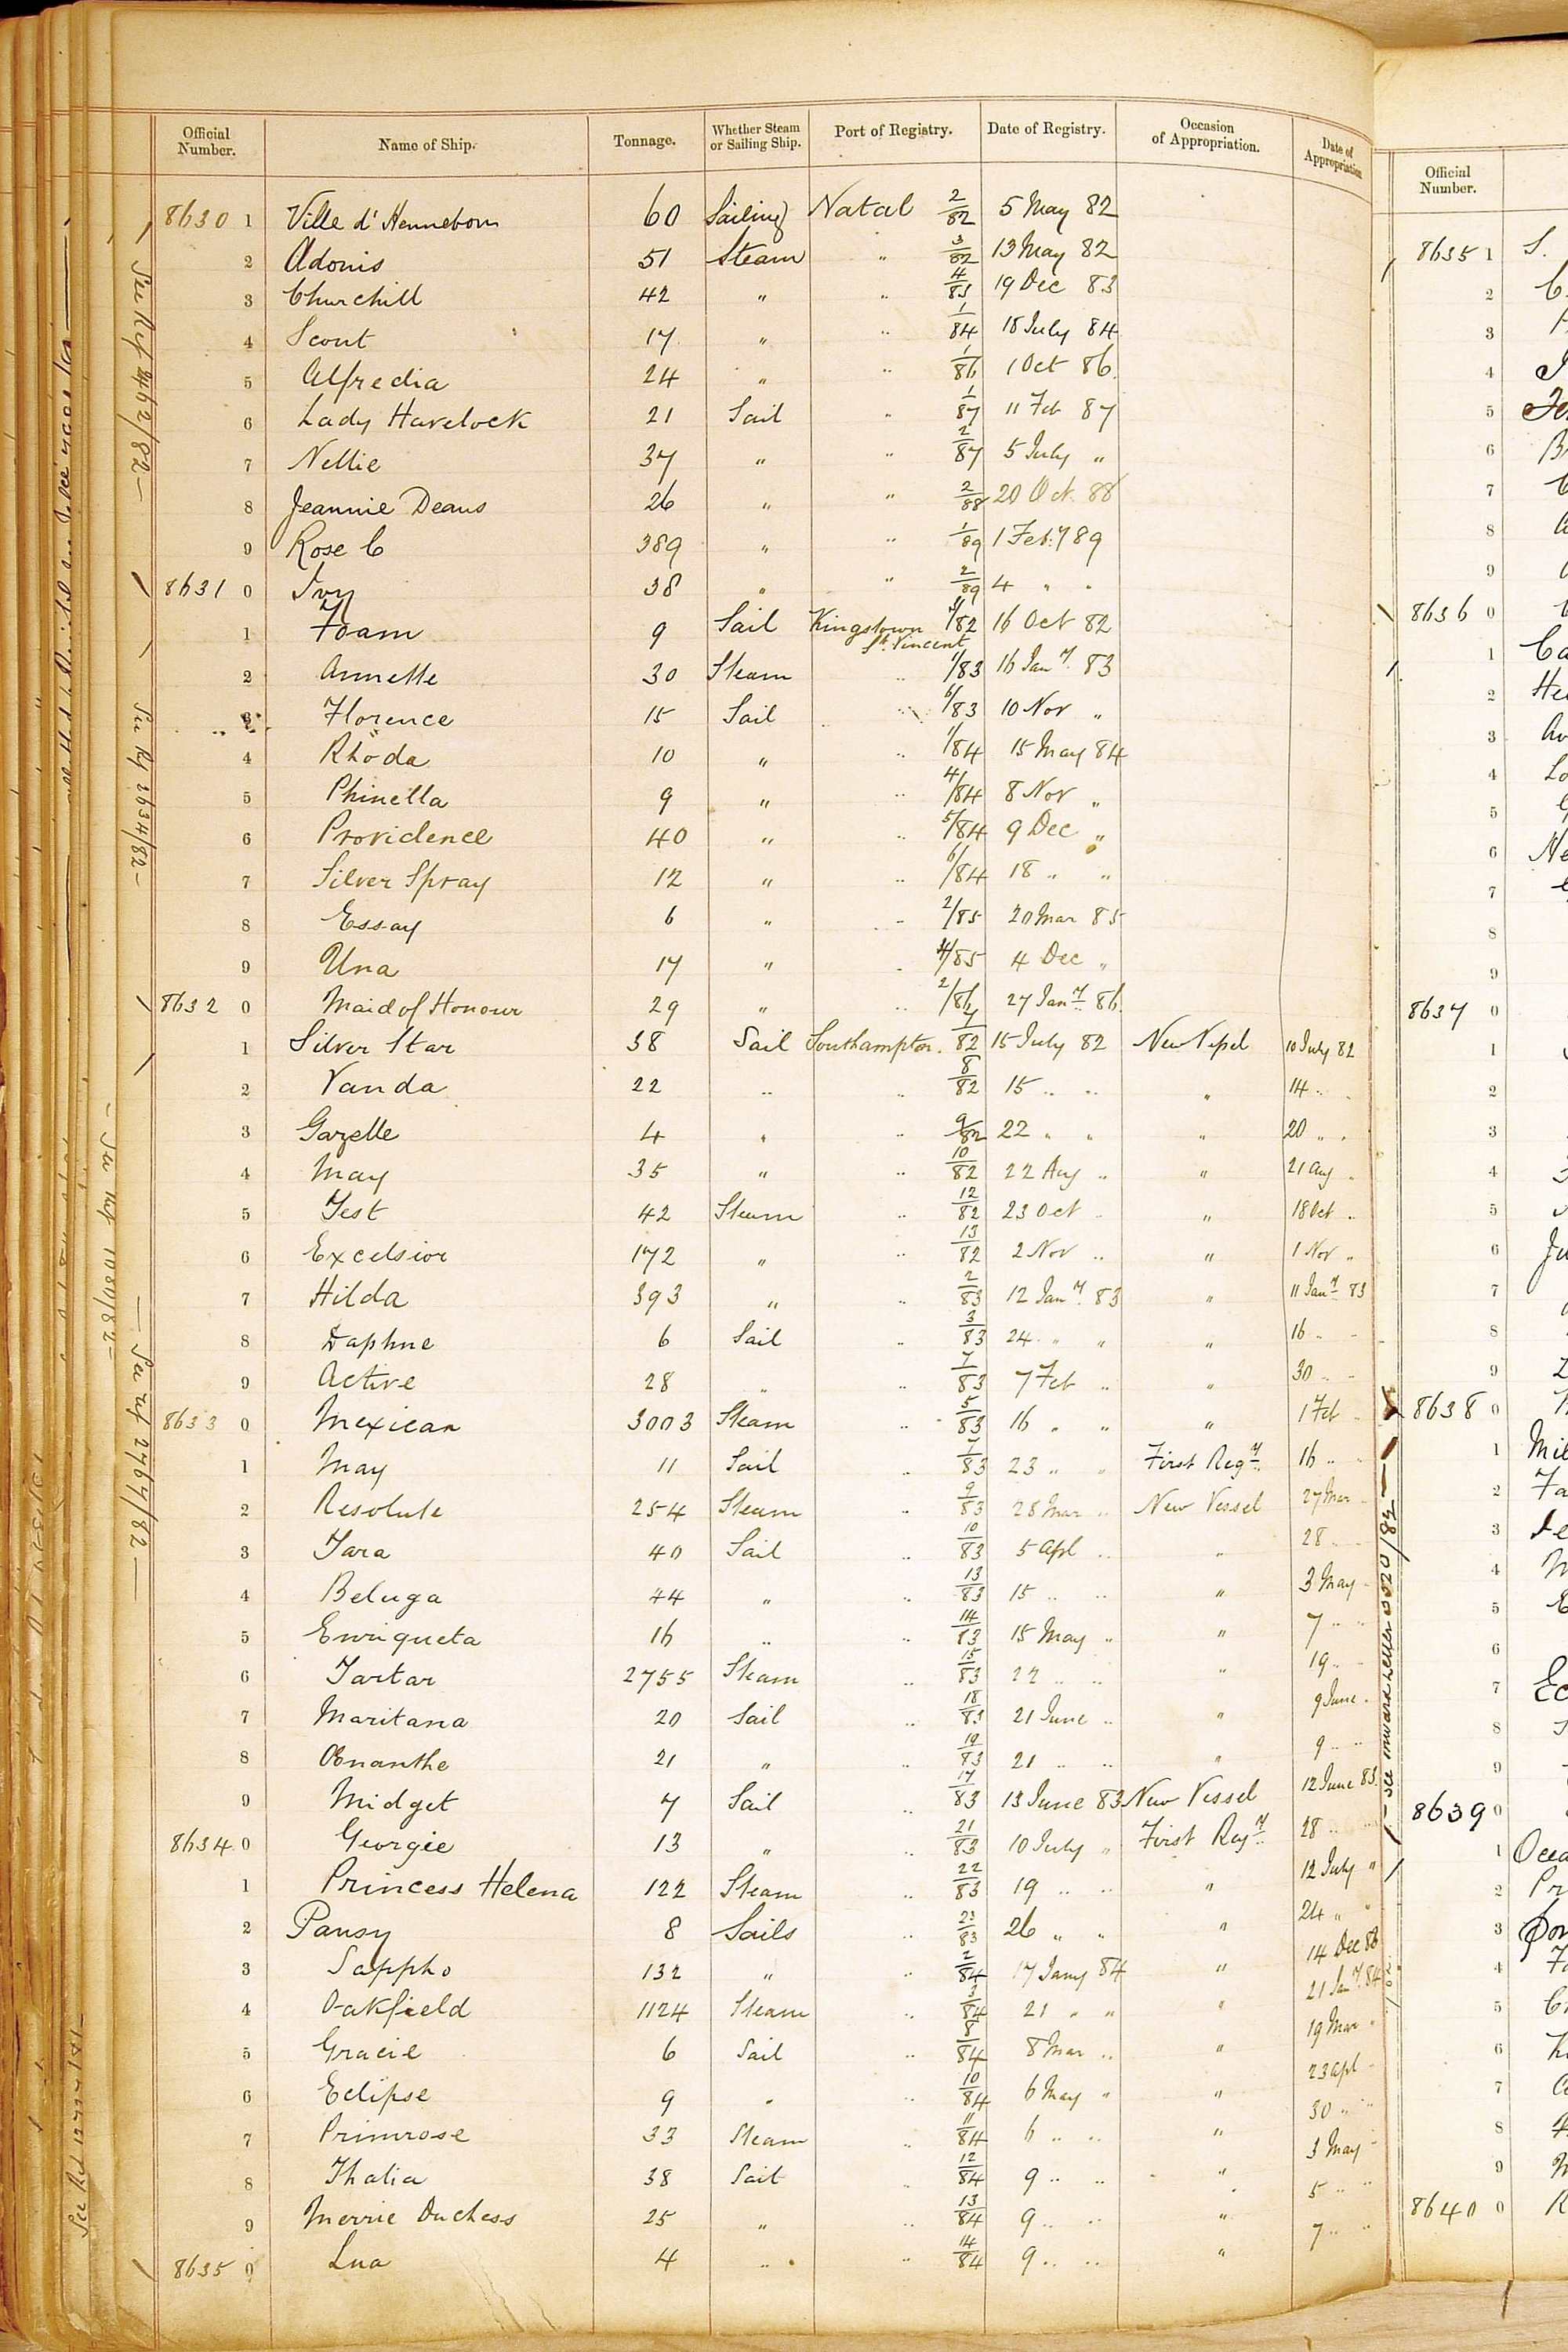 Official Number. Name of Ship. Tonnage. Whether Steam or Sailing Ship. Port of Registry. Date of Registry. Occasion of Appropriation. Date of Appropriation
8630 1 Ville d'Hennebon 60 Sailing Natal 2/82 5 May 82
2 Adonis 51 Steam " 3/82 13 May 82
3 Churchill 42 " " 4/83 19 Dec 83
4 Scout 17 " " 1/84 18 July 84
5 Alfredia 24 " " 1/86 1 Oct 86
6 Lady Havelock 21 Sail " 1/87 11 Feb 87
7 Nellie 37 " " 2/87 5 July "
8 Jeannie Deans 26 " " 2/88 20 Oct. 88
9 Rose C 389 " " 1/89 1 Feby 89
8631 0 Ivy 38 " " 2/89 4 " "
1 Foam 9 Sail Kingstown St. Vincent /82 16 Oct 82
2 Annette 30 Steam " 1/83 16 Jany. 83
3 Florence 15 Sail " 6/83 10 Nov "
4 Rhoda 10 " " 1/84 15 May 84
5 Phinella 9 " " 4/84 8 Nov "
6 Providence 40 " " 5/84 9 Dec "
7 Silver Spray 12 " " 6/84 18 " "
8 Essay 6 " " 2/85 20 Mar 85
9 Una 17 " " /85 4 Dec "
8632 0 Maid of Honour 29 " " 2/86 27 Jany. 86
1 Silver Star 38 Sail Southampton. 7/82 15 July 82 New Vessel 10 July 82
2 Vanda 22 " " 8/82 15 " " " 14 " "
3 Gazelle 4 " " 9/82 22 " " " 20 " "
4 May 35 " " 10/82 22 Aug " " 21 Aug "
5 Test 42 Steam " 12/82 23 Oct " " 18 Oct "
6 Excelsior 172 " " 13/82 2 Nov " " 1 Nov "
7 Hilda 393 " " 2/83 12 Jany. 83 " 11 Jany 83
8 Daphne 6 Sail " 3/83 24 " " " 16 " "
9 Active 28 " " /83 7 Feb " " 30 " "
8633 0 Mexican 3003 Steam " 5/83 16 " " " 1 Feb "
1 May 11 Sail " 7/83 23 " " First Regy. 16 " "
2 Resolute 254 Steam " 9/83 28 Mar " New Vessel 27 Mar "
3 Tara 40 Sail " 10/83 5 Apl " " 28 " "
4 Beluga 44 " " 13/83 15 " " " 3 May "
5 Enriqueta 16 " " 14/83 15 May " " 7 " "
6 Tartar 2755 Steam " 15/83 22 " " " 19 " "
7 Maritana 20 Sail " 18/83 21 June " " 9 June "
8 Œnanthe 21 " " 19/83 21 " " " 9 " "
9 Midget 7 Sail " 17/83 13 June 83 New Vessel 12 June 83
8634 0 Georgie 13 " " 21/83 10 July " First Regy. 28 " "
1 Princess Helena 122 Steam " 22/83 19 " " " 12 July "
2 Pansy 8 Sails " 23/83 26 " " " 24 " "
3 Sappho 132 " " 2/84 17 Jany 84 " 14 Dec
4 Oakfield 1124 Steam " 3/84 21 " " " 21 Jany. 84
5 Gracie 6 Sail " 8/84 8 Mar " " 19 Mar "
6 Eclipse 9 " " 10/84 6 May " " 23 Apl "
7 Primrose 33 Steam " 11/84 6 " " " 30 " "
8 Thalia 38 Sail " 12/84 9 " " " 3 May "
9 Merrie Duchess 25 " " 13/84 9 " " " 5 " "
8635 0 Lua 4 " " 14/84 9 " " " 7 " "
See Ref 2462/82
See Ref 3634/82
See Ref 1080/82
See Ref 2767/82
See Ref 1272/81
see inward letter 3520/82
Official Number.
8635 1 S.
2
3
4
5
6
7
8
9
8636 0
1 Ca
2 He
3
4 Lo
5
6 Ne
7
8
9
8637 0
1
2
3
4
5
6 Ju
7
8
9
8638 0
1 Mil
2 Fa
3
4
5
6
7 Ec
8
9
8639 0
1 Ocea
2 Pr
3
4
5
6
7
8
9
8640 0 R